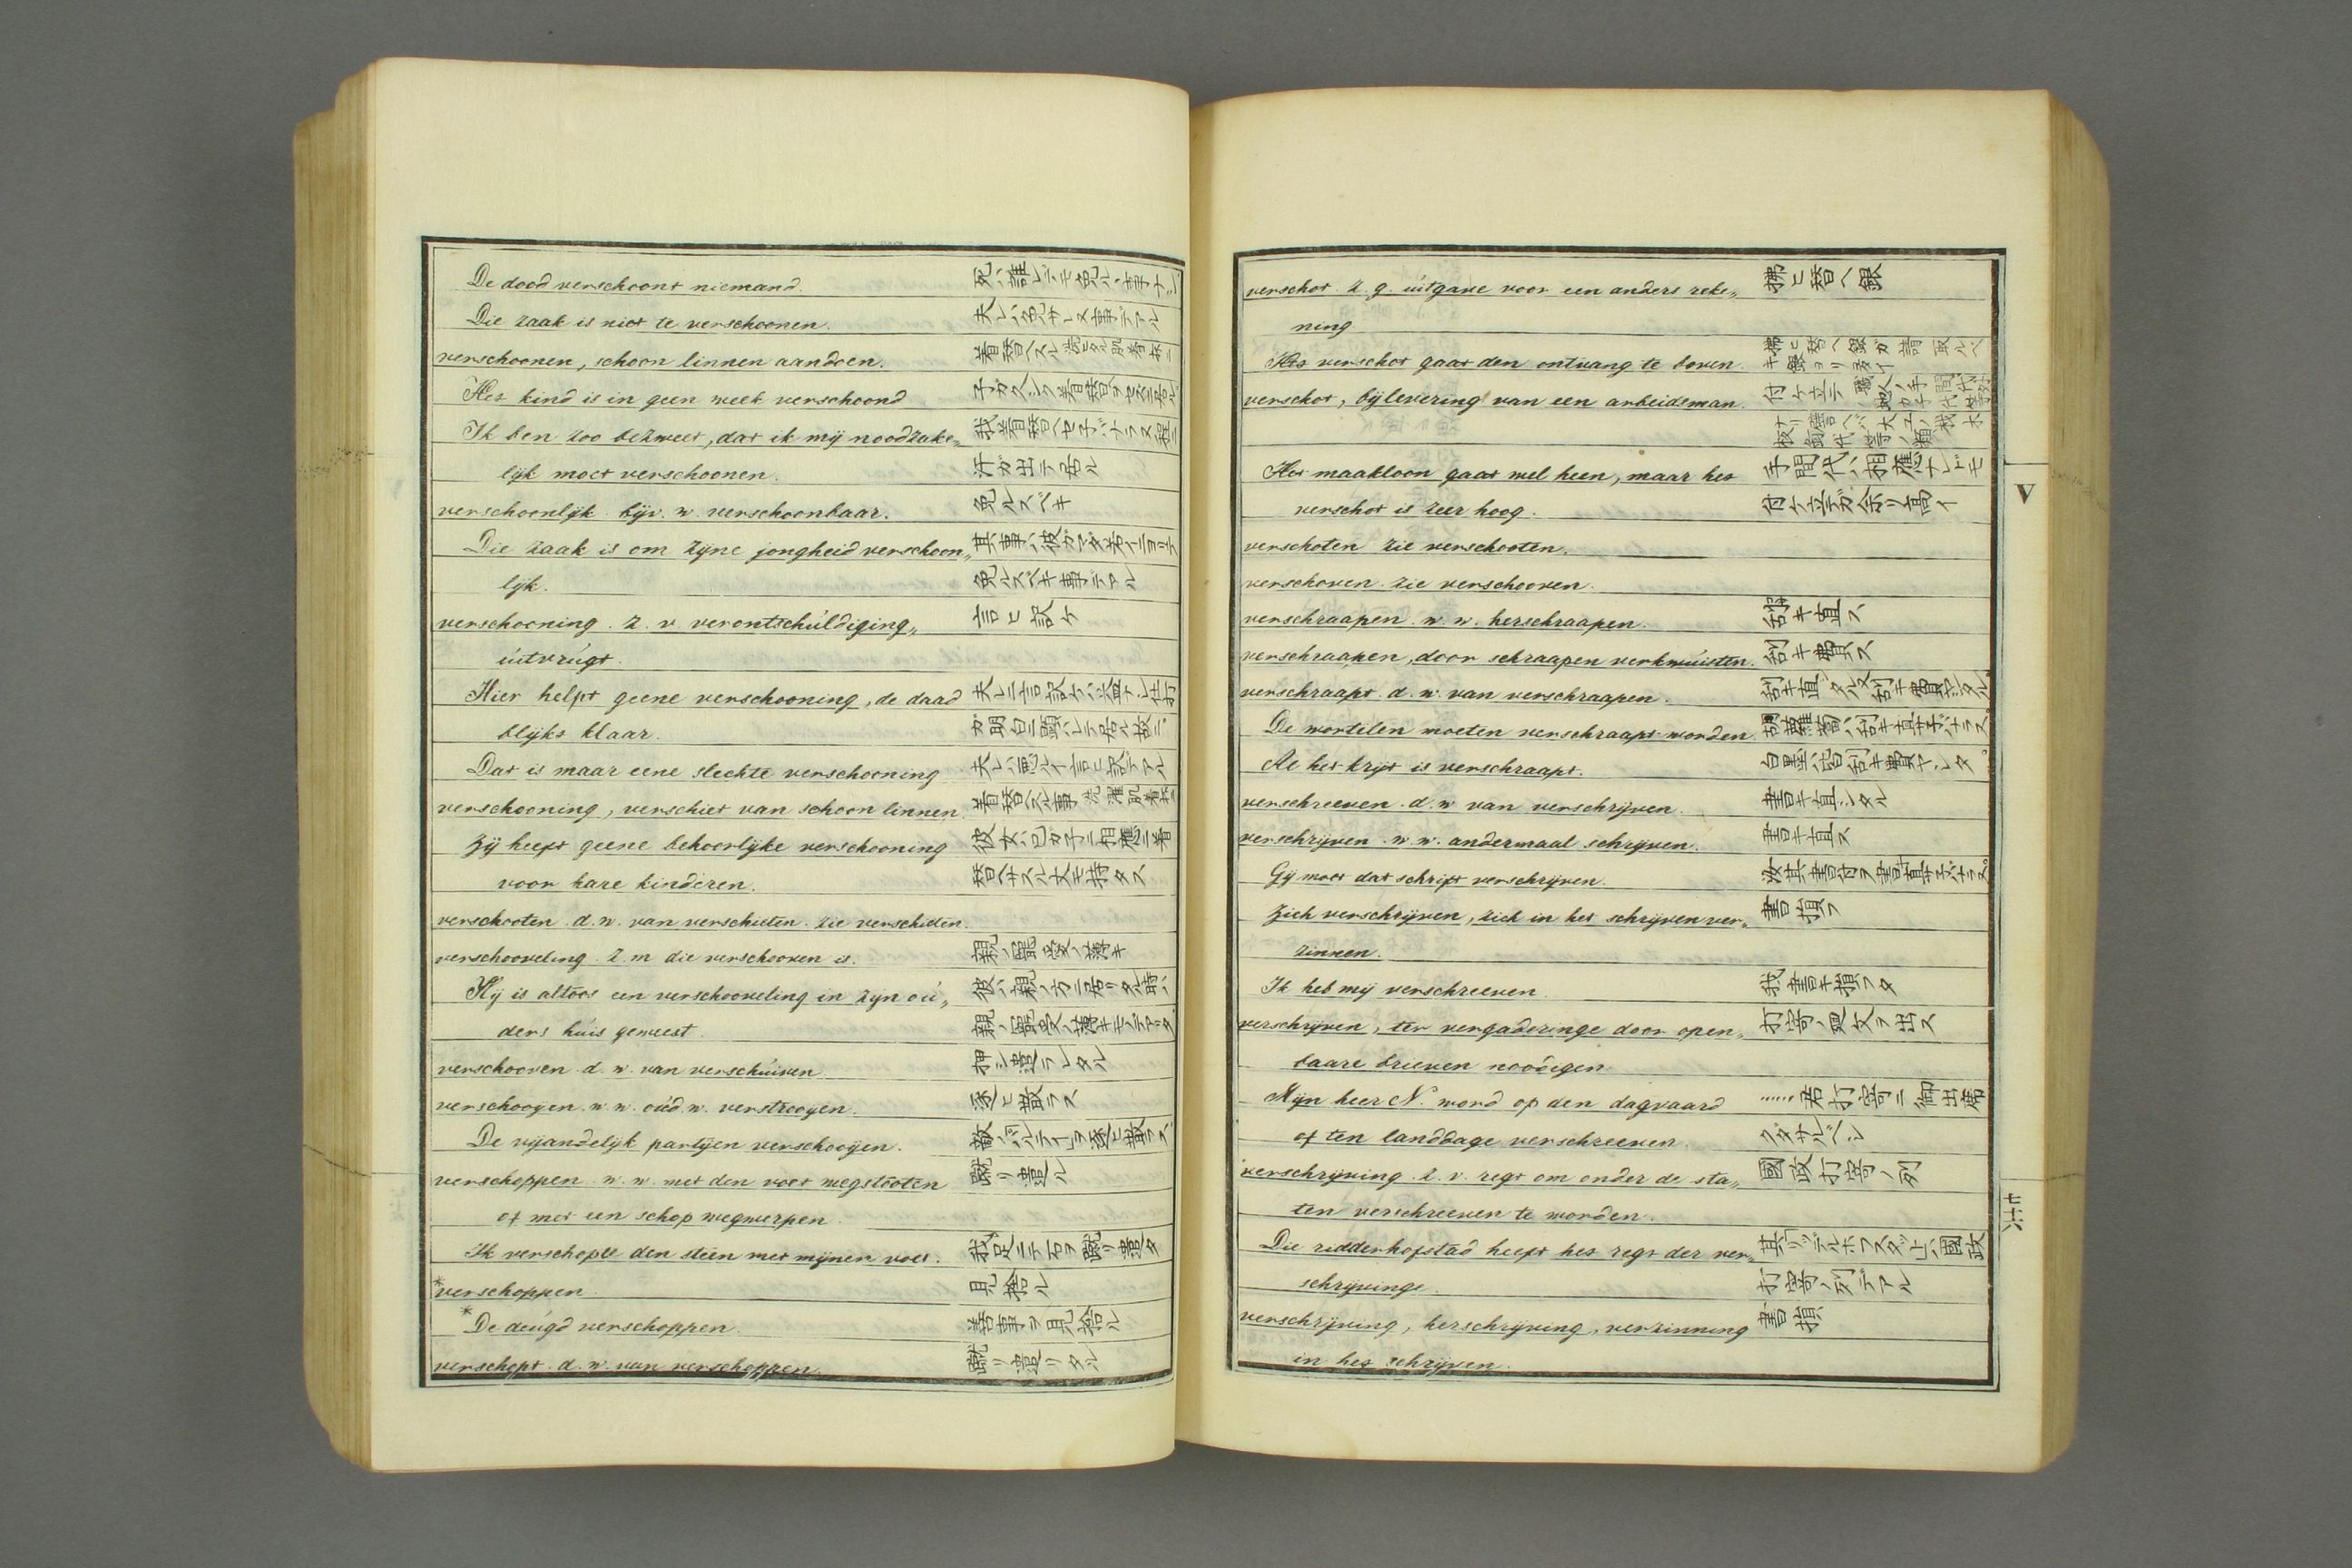 De dood verschoont niemand. 死ハ誰レニテモ免ルヽ事ナシ
Die zaak is niet te verschoonen. 夫レハ免サレヌ事デアル
verschoonen, schoon linnen aandoen. 着替ヘスル
Het kind is in geen week verschoond
Ik ben zoo bezweet, dat ik mij noodzake„ 我着替ヘセ子バナラヌ程ニ
lijk moet verschoonen. 汗ガ出テ居ル
verschoonlijk. bijv. w. verschoonbaar. 免ルスベキ
Die zaak is om zijne jongheid verschoon„ 其事ハ彼ガマダ若イニヨリテ
lijk. 免ルスベキ事デアル
verschooning. z. v. verontschúldiging„ 言ヒ訳ケ
úitvrúgt.
Hier helpt geene verschooning, de daad 夫レニ言訳ケハ益ナシ仕打
blijks klaar. ガ明白ニ顕ハレテ居ル故ニ
Dat is maar eene slechte verschooning 夫レハ悪ルイ言ヒ訳デアル
verschooning, verschiet van schoon linnen. 着替ヘスル事
Zij heeft geene behoorlijke verschooning 彼女ハ己ガ子ニ相應ニ着
voor hare kinderen. 替ヘサスル丈モ持タヌ
verschooten. d. w. van verschieten. zie verschieten.
verschooveling. z. m die verschooven is. 親ノ寵愛ノ薄キ
Hij is altoos een verschooveling in zijn oú„ 彼ハ親ノ方ニ居リタル時ハ
ders húis geweest. 親ノ寵愛ノ薄キモノデアッタ
verschooven. d. w. van verschúiven. 押シ遣ラレタル
verschooyen. w. w. oúd. w. verstrooyen. 逐ヒ散ラス
De vijandelijk partijen verschooyen. 敵ノパルテイーヲ逐ヒ散ラス
verschoppen. w. w. met den voet wegstooten 蹴リ遣ル
of met een schop wegwerpen.
Ik verschopte den steen met mijnen voet. 我足ニテ石ヲ蹴リ遣タ
*verschoppen. 見捨ル
*De deúgd verschoppen. 善事ヲ見捨ル
verschopt. d. w. van verschoppen. 蹴リ遣リタル
verschot. z. g. úitgave voor een anders reke„ 拂ヒ替ヘ銀
ning
Het verschot gaat den ontvang te boven. 拂ヒ替ヘ銀ガ請取ルベキ銀ヨリ多イ
verschot, bijlevering van een arbeidsman. 付ケ立テ
Het maakloon gaat wel heen, maar het 手間代ハ相應ナレドモ
verschot is zeer hoog. 付ケ立テガ余リ高イ
verschoten zie verschooten.
verschoven. zie verschooven.
verschraapen. w. w. herschraapen. 刮キ直ス
verschraapen, door schraapen verkwúisten. 刮キ費ス
verschraapt. d. w. van verschraapen. 刮キ直シタル又刮キ費ヤシタル
De wortelen moeten verschraapt worden. 胡蘿蔔ハ刮キ直サ子バナラヌ
Al het krijt is verschraapt. 白墨ハ皆刮キ費ヤシタ
verschreeven. d. w van verschrijven. 書キ直シタル
verschrijven. w. w. andermaal schrijven. 書キ直ス
Gij moet dat schrift verschrijven. 汝其書付ヲ書キ直サ子バナラヌ
Zich verschrijven, zich in het schrijven ver„ 書損フ
zinnen.
Ik heb mij verschreeven. 我書キ損フタ
verschrijven, ter vergaderinge door open„ 打寄ノ廻文ヲ出ス
baare brieven noodigen.
Mijn heer N. word op den dagvaard ……君打寄ニ御出席
of ten landdage verschreeven. クダサルベシ
verschrijving. z. v. regt om onder de sta„ 國政打寄ノ列
ten verschreeven te worden.
Die ridderhofstad heeft het regt der ver„ 其リッデルホフスタットハ國政
schrijvinge. 打寄ノ列デアル
verschrijving, herschrijving, verzinning 書損
in het schrijven.
V
七十六